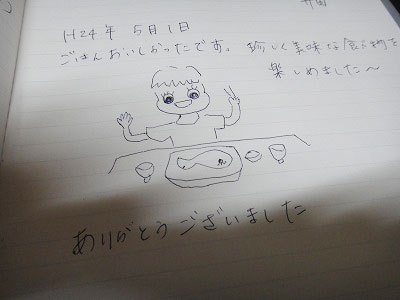 H24年 5月1日
ごはんおいしかったです。珍しく美味な食べ物を
楽しめました〜
ありがとうございました